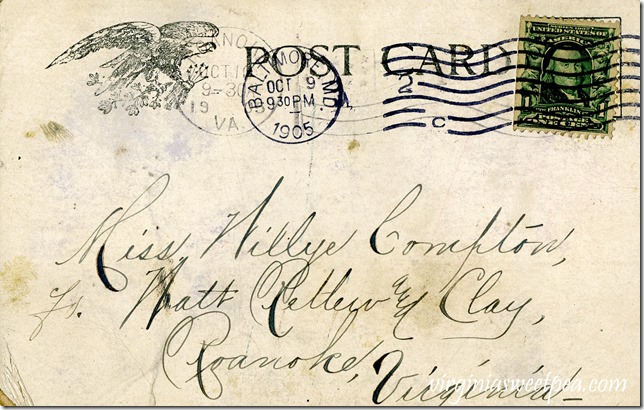 POST CARD
ROANOKE
OCT 10
9-30
19
VA.
BALTIMORE, MD.
OCT 9
930PM
1905
C
UNITED STATES OF AMERICA
FRANKLIN
POSTAGE
ONE CENT
Miss Willye Compton,
Watt Rettew & Clay,
Roanoke,
Virginia
virginiasweetpea.com